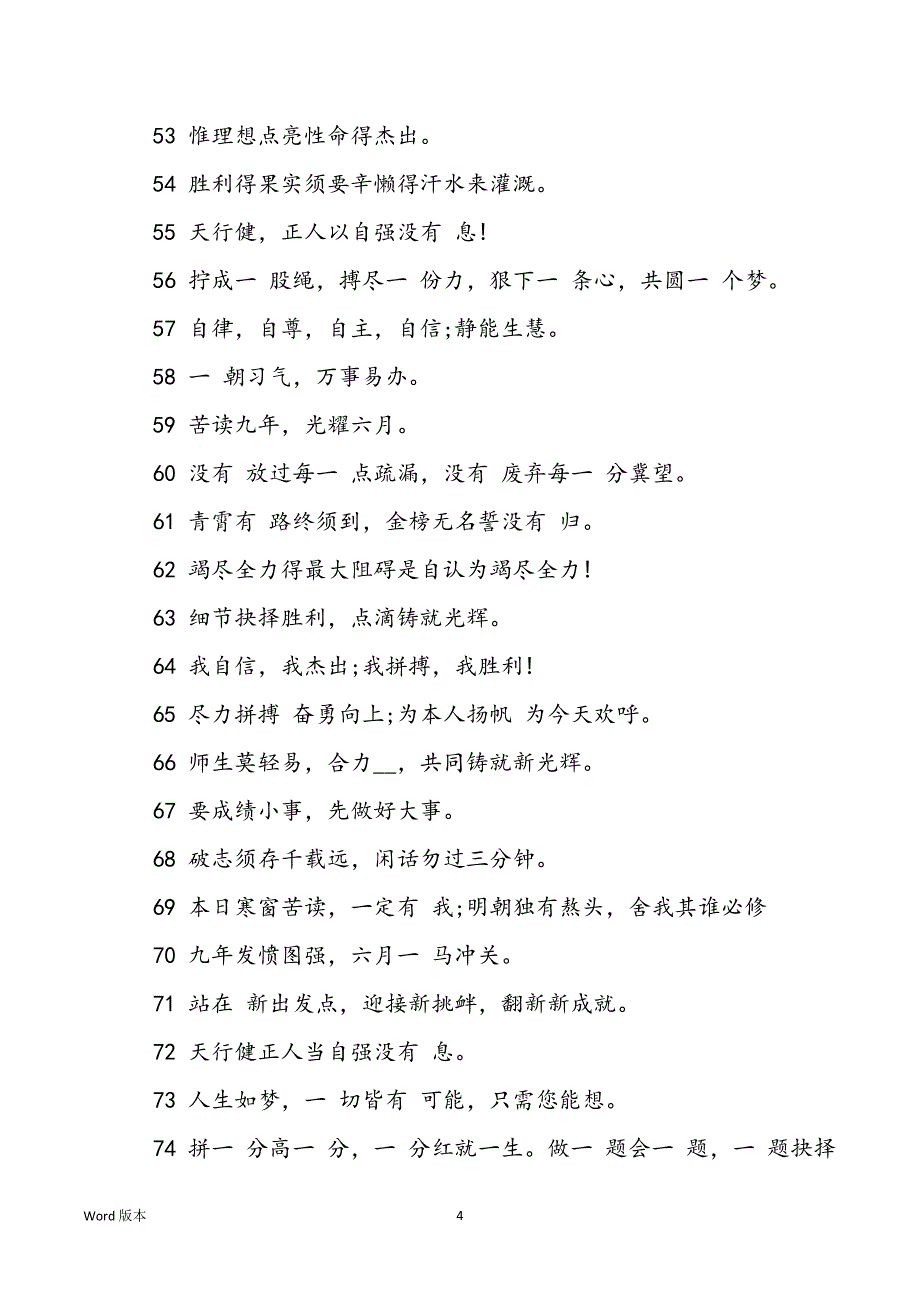 53 惟理想点亮性命得杰出。
54 胜利得果实须要辛懒得汗水来灌溉。
55 天行健，正人以自强没有 息！
56 拧成一 股绳，搏尽一 份力，狠下一 条心，共圆一 个梦。
57 自律，自尊，自主，自信;静能生慧。
58 一 朝习气，万事易办。
59 苦读九年，光耀六月。
60 没有 放过每一 点疏漏，没有 废弃每一 分冀望。
61 青霄有 路终须到，金榜无名誓没有 归。
62 竭尽全力得最大阻碍是自认为竭尽全力！
63 细节抉择胜利，点滴铸就光辉。
64 我自信，我杰出;我拼搏，我胜利！
65 尽力拼搏 奋勇向上;为本人扬帆 为今天欢呼。
66 师生莫轻易，合力__，共同铸就新光辉。
67 要成绩小事，先做好大事。
68 破志须存千载远，闲话勿过三分钟。
69 本日寒窗苦读，一定有 我;明朝独有熬头，舍我其谁必修
70 九年发愤图强，六月一 马冲关。
71 站在 新出发点，迎接新挑衅，翻新新成就。
72 天行健正人当自强没有 息。
73 人生如梦，一 切皆有 可能，只需您能想。
74 拼一 分高一 分，一 分红就一生。做一 题会一 题，一 题抉择
Word 版本 4